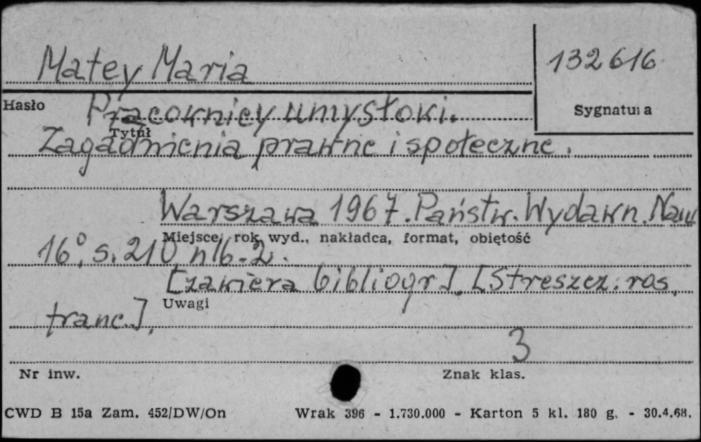 Matey Maria
132616
Hasło
Sygnatura
Pracownicy umysłowi.
Tytuł
Zagadnienia prawne i społeczne.
Warszawa 1967. Państw. Wydawn. Nauk
Miejsce, rok wyd., nakładca, format, objętość
16°, s. 210 nlb. 2.
[zawiera bibliogr], [Streszcz. ros.
Uwagi
franc.],
3
Nr inw.
Znak klas.
CWD B 15a Zam. 452/DW/On Wrak 396 - 1.730.000 - Karton 5 kl. 180 g. - 30.4.68.